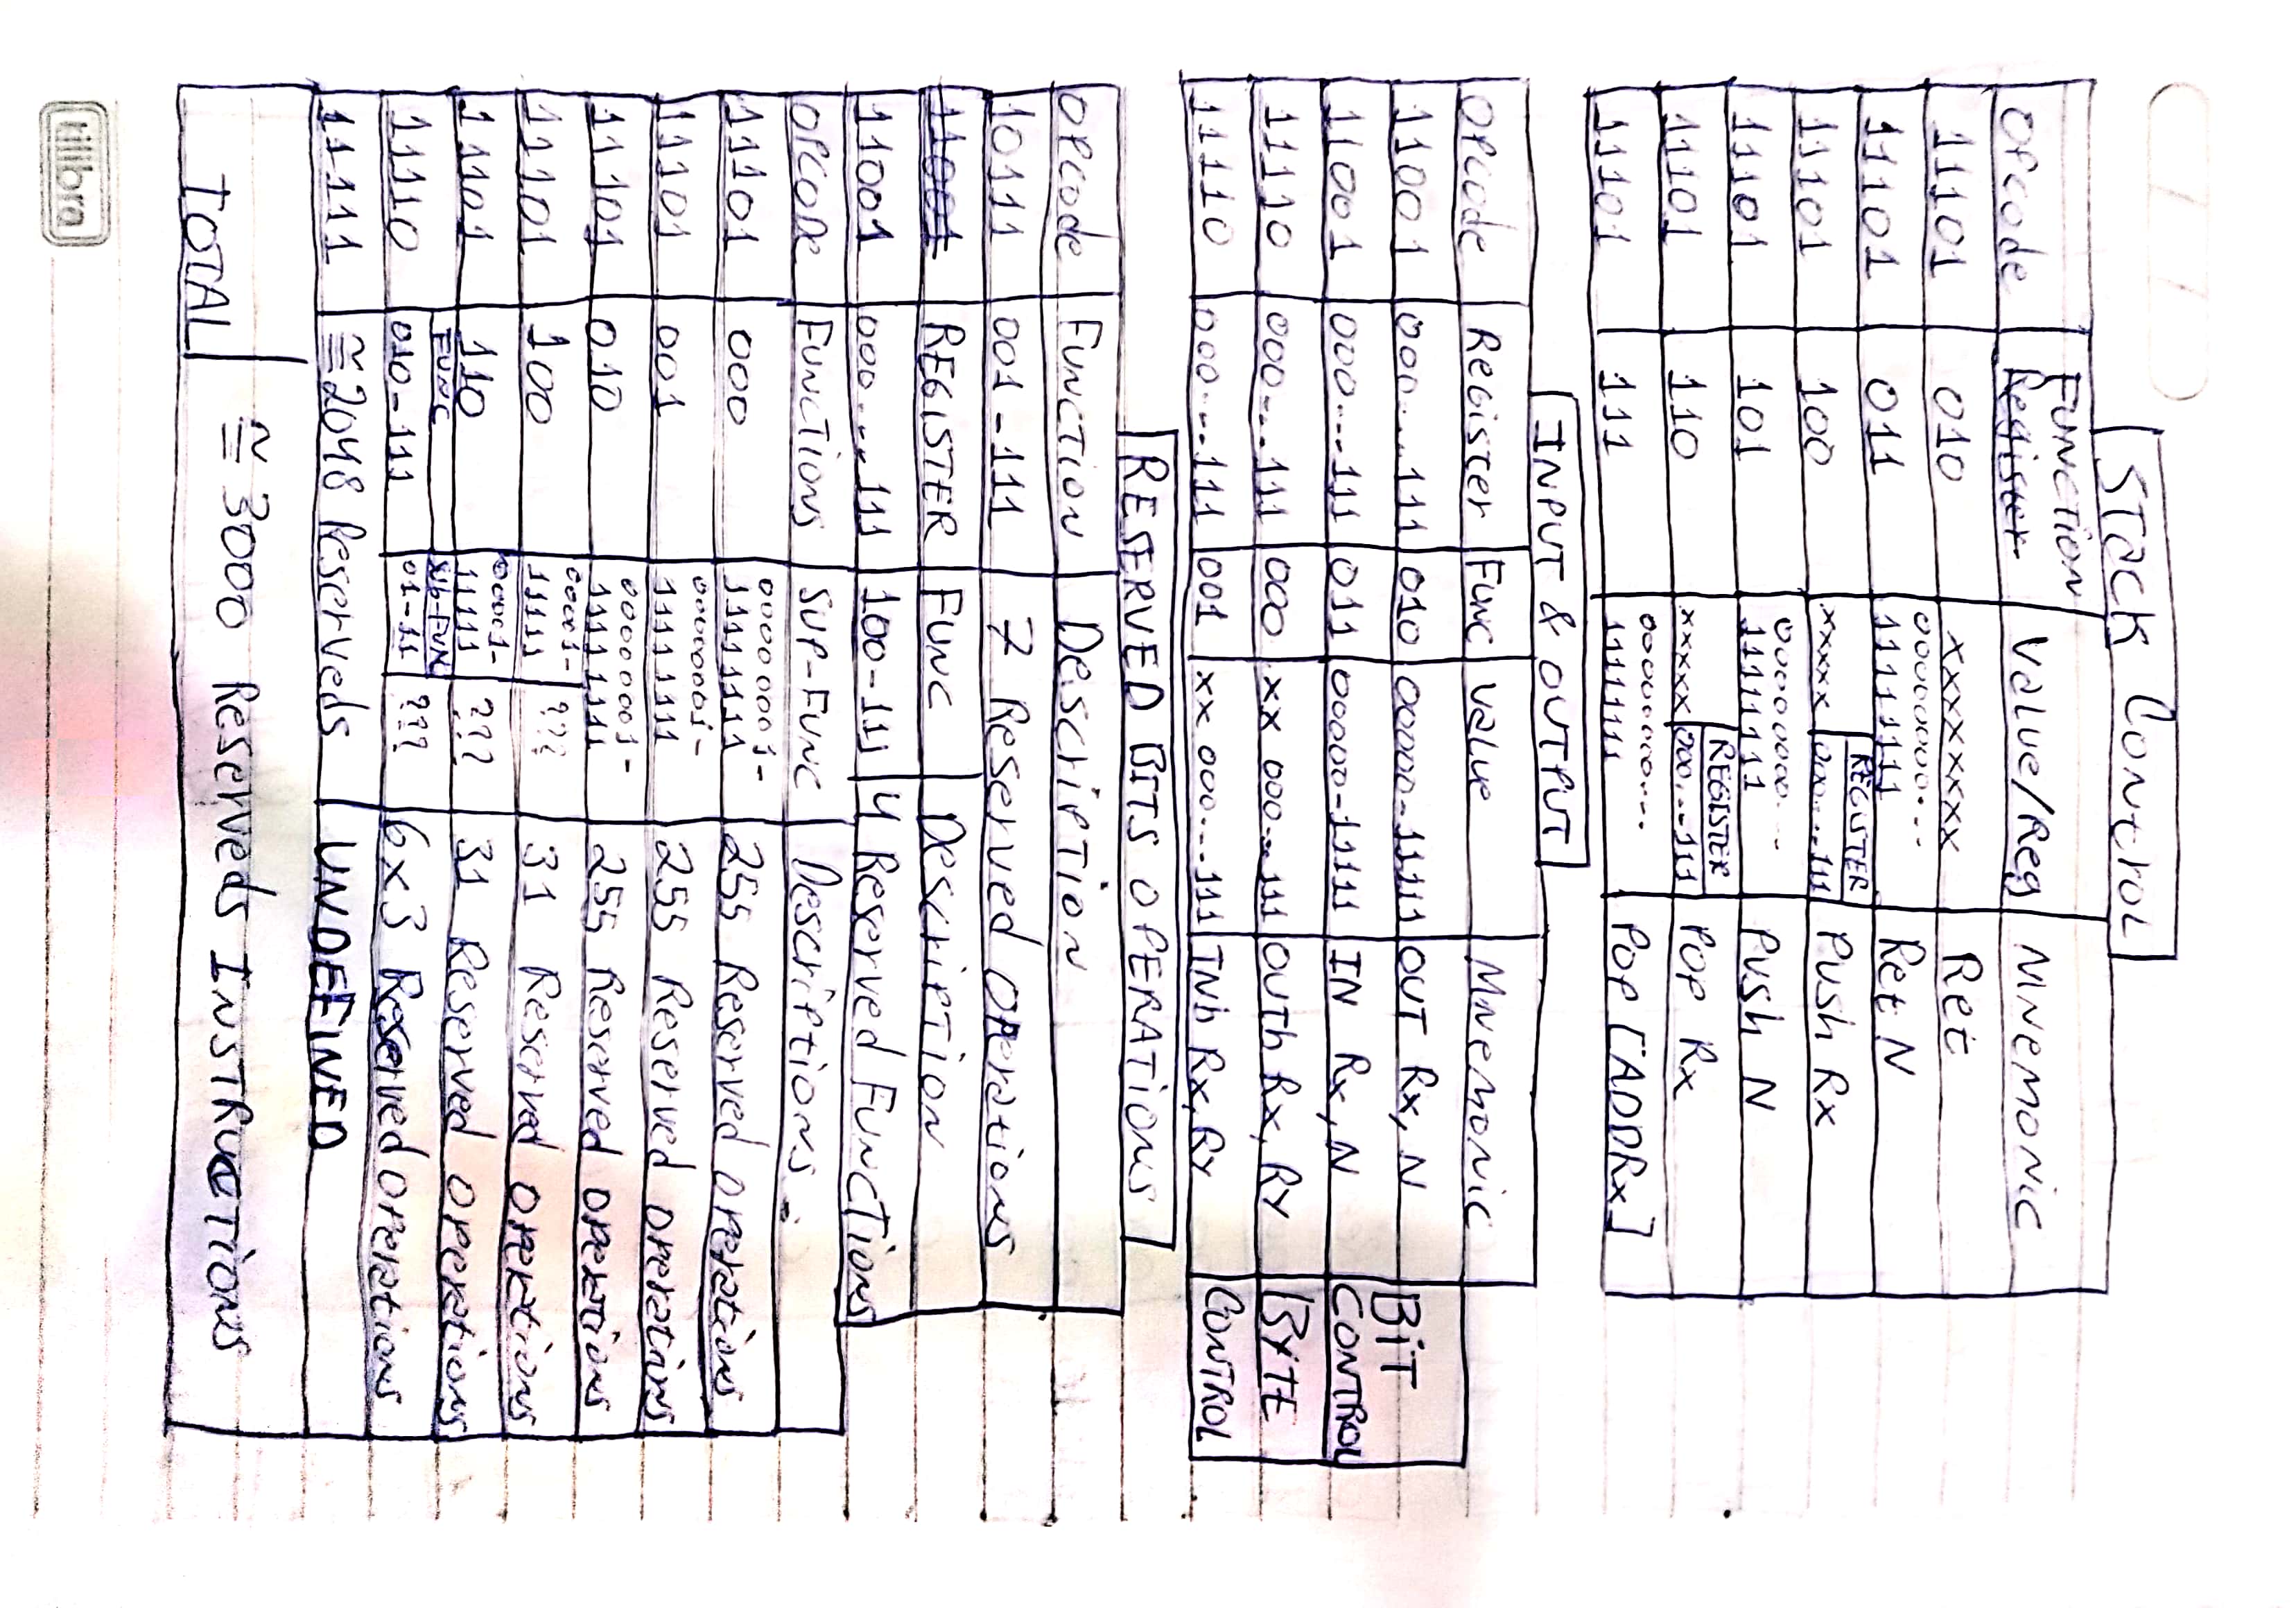 Stack Control
Opcode FUNCTION Register Value/Reg Mnemonic
11101 010 xxxxxxxx Ret
11101 011 00000000... 11111111 Ret N
11101 100 xxxxx REGISTER 000....111 Push Rx
11101 101 00000000... 11111111 Push N
11101 110 xxxxx REGISTER 000...-111 Pop Rx
11101 111 00000000... 11111111 Pop [ADDRx]
INPUT & OUTPUT
Opcode Register FUNC Value Mnemonic
11001 000....111 010 00000-11111 OUT Rx, N BiT
11001 000...111 011 00000-11111 IN Rx, N CONTROL
11110 000...111 000 xx 000...111 OUTb Rx, RY BYTE
11110 000....111 001 xx 000...111 INb Rx, RY CONTROL
RESERVED BITS OPERATIONS
Opcode FUNCTION Description
10111 001-111 7 Reserved Operations
11001 REGISTER FUNC Description
11001 000....111 100-111 4 Reserved FUNCTIONS
OPCODE FUNCTIONS SUP-FUNC Descriptions
11101 000 00000001- 11111111 255 Reserved operations
11101 001 00000001- 11111111 255 Reserved operations
11101 010 00000001- 11111111 255 Reserved operations
11101 100 00001- 11111 ??? 31 Reserved operations
11101 110 00001- 11111 ??? 31 Reserved operations
11110 FUNC 010-111 SUb-FUN 01-11 ??? 6x3 Reserved operations
11111 ≅2048 Reserveds UNDEFINED
TOTAL ≅ 3000 Reserveds INSTRUCTIONS
tilibra